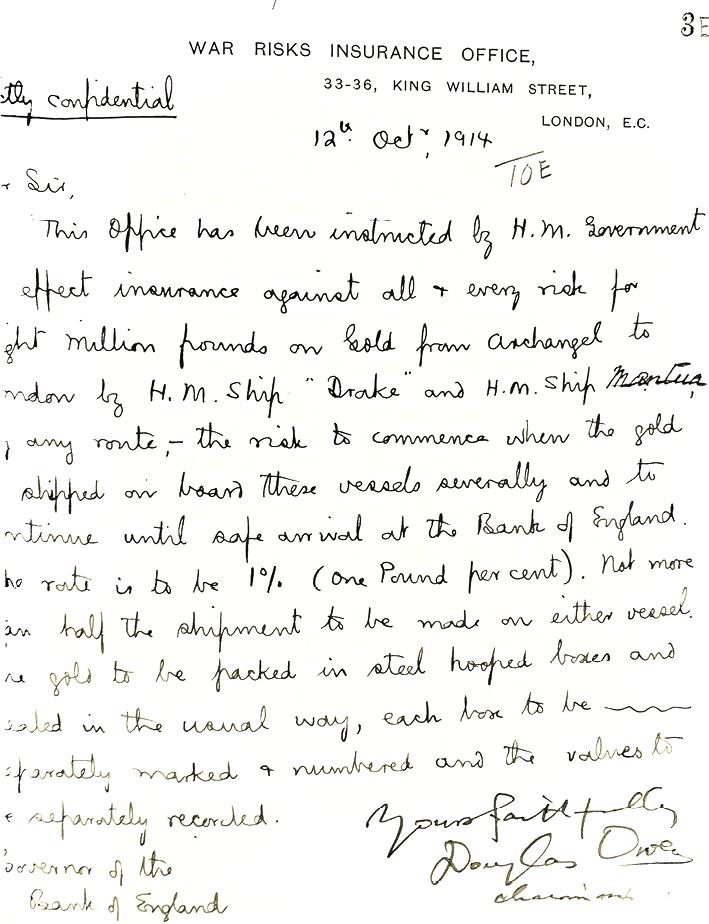 3E
WAR RISKS INSURANCE OFFICE,
33-36, KING WILLIAM STREET,
LONDON, E.C.
tly confidential
12th Octr, 1914
TOE
r Sir,
This Office has been instructed by H.M. Government
effect insurance against all + every risk for
ght million pounds on Gold from Archangel to
ndon by H.M. Ship "Drake" and H.M. Ship Mantua,
y any route, – the risk to commence when the gold
shipped on board these vessels severally and to
ntinue until safe arrival at the Bank of England.
he rate is to be 1% (One Pound per cent). Not more
an half the shipment to be made on either vessel.
he gold to be packed in steel hooped boxes and
ealed in the usual way, each box to be
eparately marked + numbered and the values to
e separately recorded.
Yours faithfully
Douglas Owen
chairman
Governor of the
Bank of England